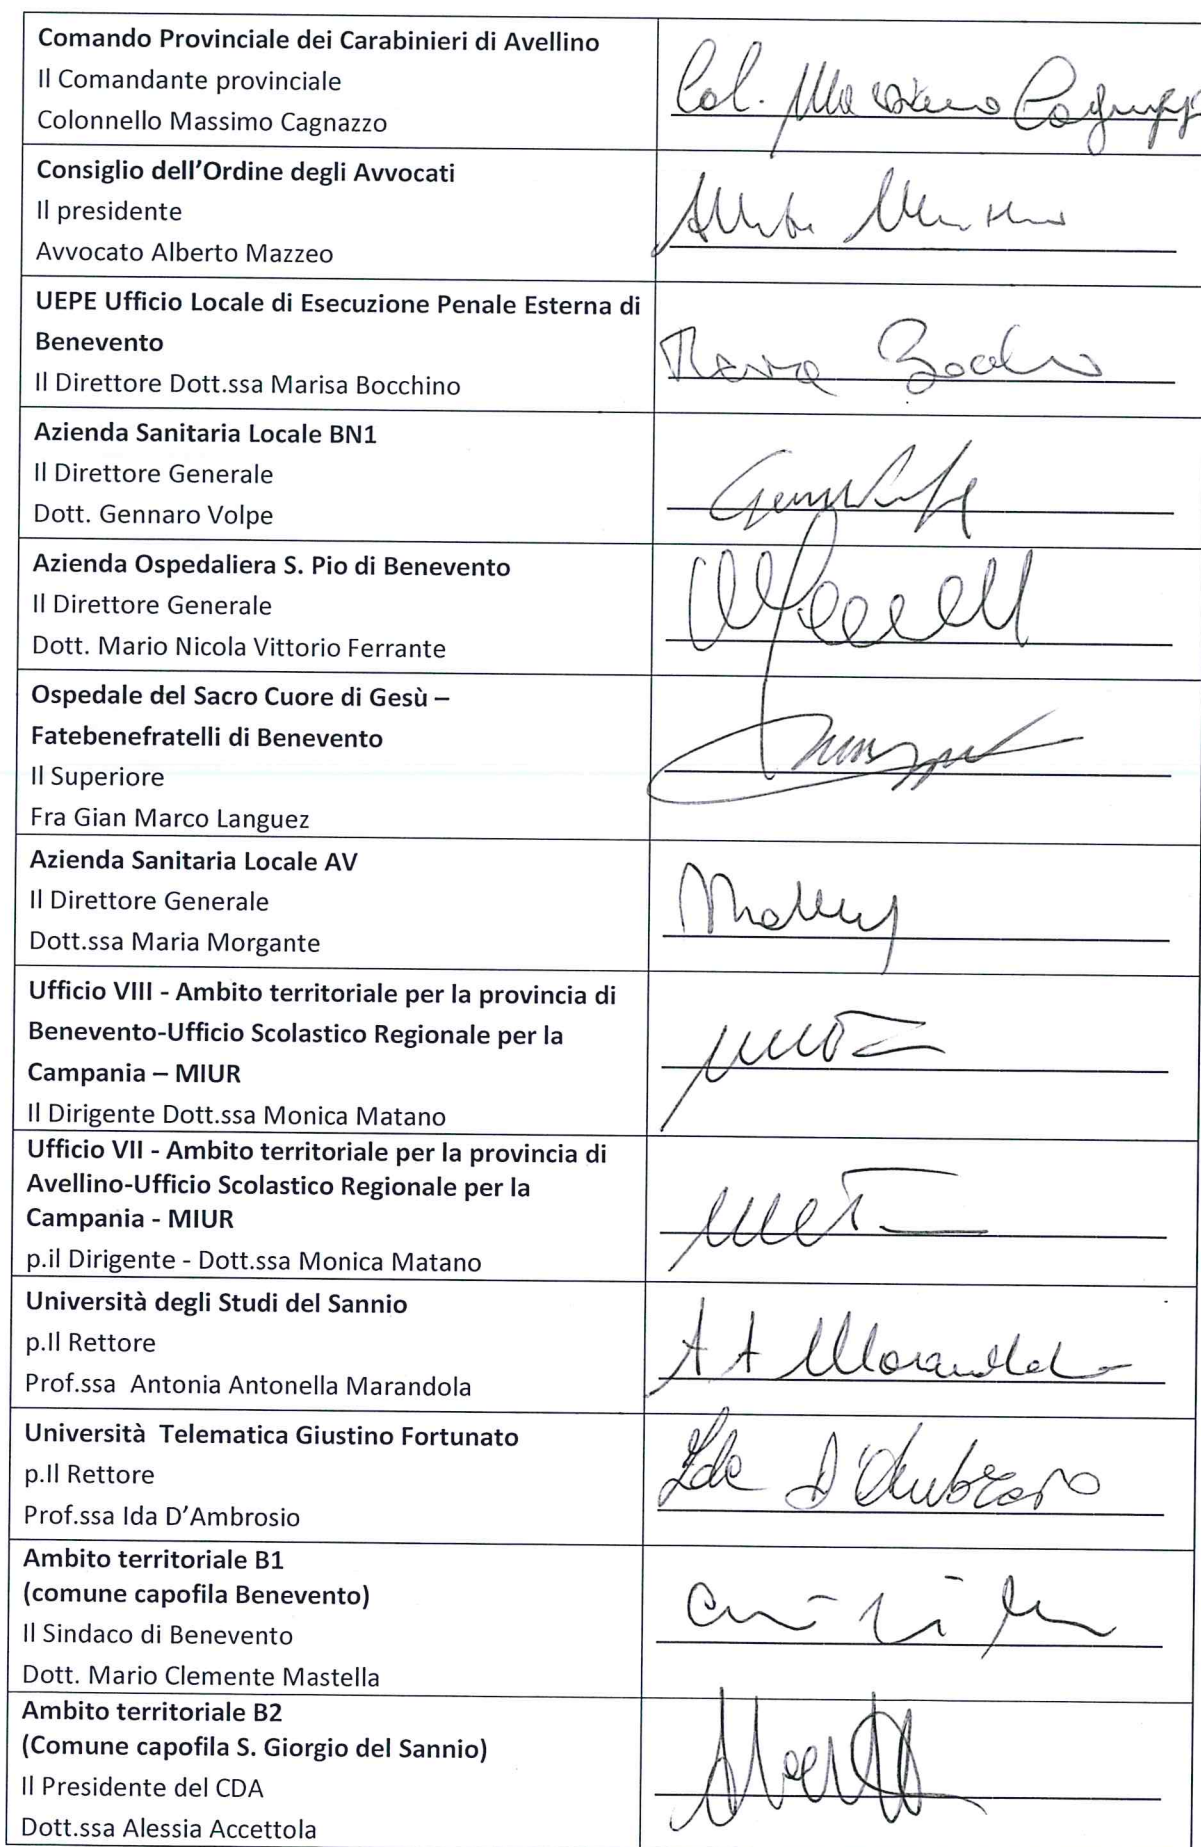 Comando Provinciale dei Carabinieri di Avellino
Il Comandante provinciale
Colonnello Massimo Cagnazzo
Col. Massimo
Consiglio dell'Ordine degli Avvocati
Il presidente
Avvocato Alberto Mazzeo
UEPE Ufficio Locale di Esecuzione Penale Esterna di
Benevento
Il Direttore Dott.ssa Marisa Bocchino
Azienda Sanitaria Locale BN1
Il Direttore Generale
Dott. Gennaro Volpe
Azienda Ospedaliera S. Pio di Benevento
Il Direttore Generale
Dott. Mario Nicola Vittorio Ferrante
Ospedale del Sacro Cuore di Gesù –
Fatebenefratelli di Benevento
Il Superiore
Fra Gian Marco Languez
Azienda Sanitaria Locale AV
Il Direttore Generale
Dott.ssa Maria Morgante
Ufficio VIII - Ambito territoriale per la provincia di
Benevento-Ufficio Scolastico Regionale per la
Campania – MIUR
Il Dirigente Dott.ssa Monica Matano
Ufficio VII - Ambito territoriale per la provincia di
Avellino-Ufficio Scolastico Regionale per la
Campania - MIUR
p.il Dirigente - Dott.ssa Monica Matano
Università degli Studi del Sannio
p.Il Rettore
Prof.ssa Antonia Antonella Marandola
A A Marandola
Università Telematica Giustino Fortunato
p.Il Rettore
Prof.ssa Ida D'Ambrosio
Ida D'Ambrosio
Ambito territoriale B1
(comune capofila Benevento)
Il Sindaco di Benevento
Dott. Mario Clemente Mastella
Ambito territoriale B2
(Comune capofila S. Giorgio del Sannio)
Il Presidente del CDA
Dott.ssa Alessia Accettola